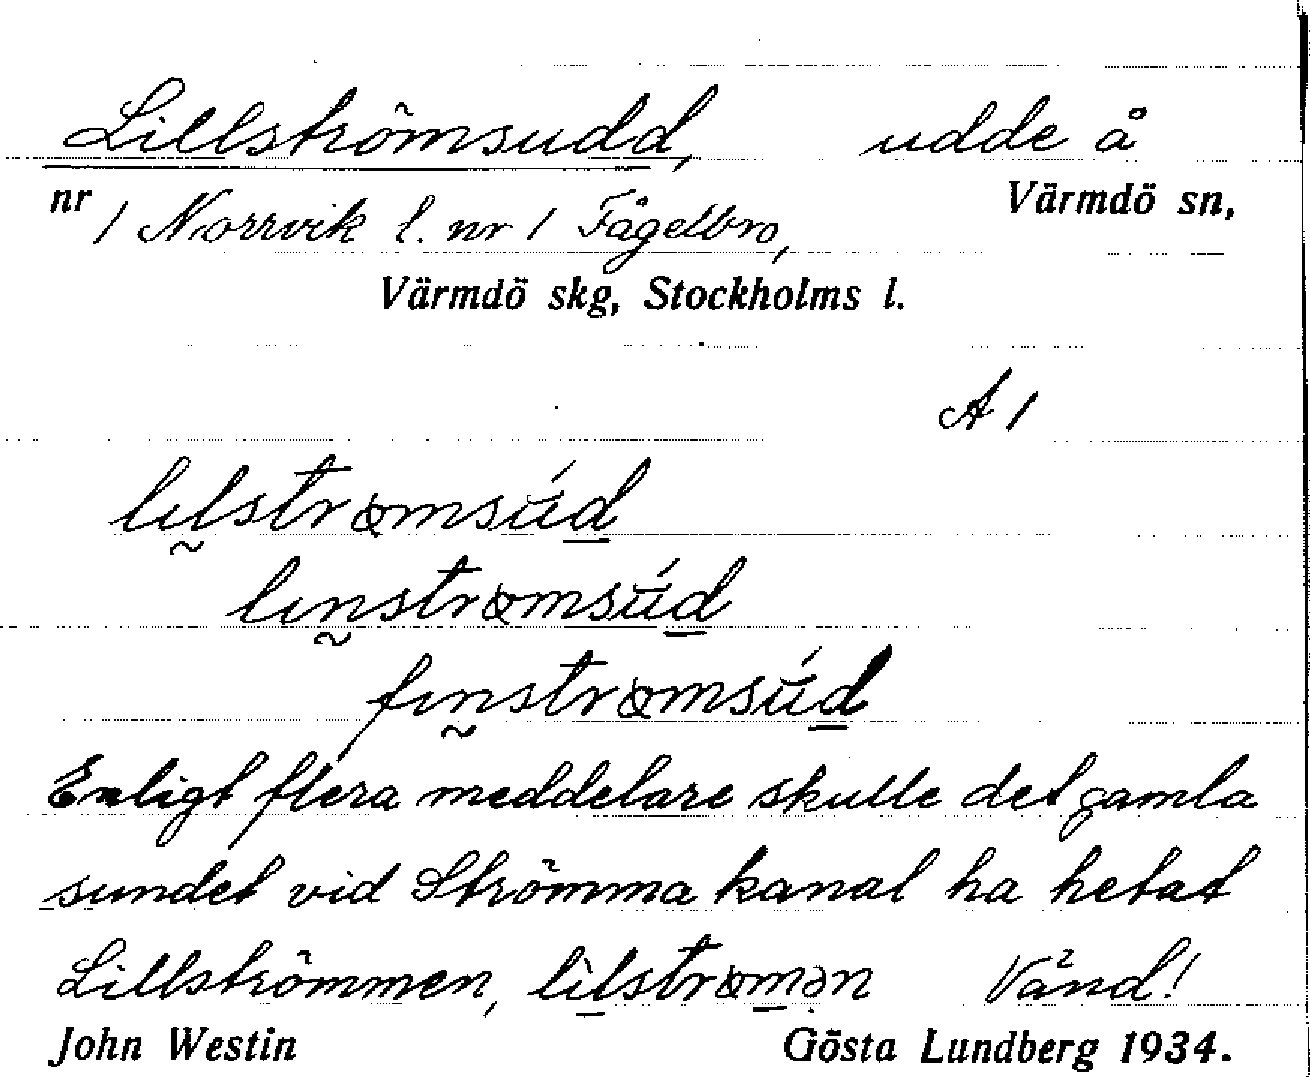 Lillströmsudd, udde å
nr 1 Norrvik l. nr 1 Fågelbro, Värmdö sn,
Värmdö skg, Stockholms l.
A 1
lɩl̰strɷmsú̆d̲
lɩn̰strɷmsú̆d̲
fɩn̰strɷmsú̆d̲
Enligt flera meddelare skulle det gamla
sundet vid Strömma kanal ha hetat
Lillströmmen, lɩ̀l̲strɷm̲ən Vänd!
John Westin Gösta Lundberg 1934.